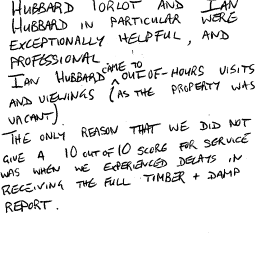 HUBBARD TORLOT AND IAN
HUBBARD IN PARTICULAR WERE
EXCEPTIONALLY HELPFUL, AND
PROFESSIONAL
IAN HUBBARD CAME TO OUT-OF-HOURS VISITS
AND VIEWINGS (AS THE PROPERTY WAS
VACANT).
THE ONLY REASON THAT WE DID NOT
GIVE A 10 OUT OF 10 SCORE FOR SERVICE
WAS WHEN WE EXPERIENCED DELAYS IN
RECEIVING THE FULL TIMBER + DAMP
REPORT.